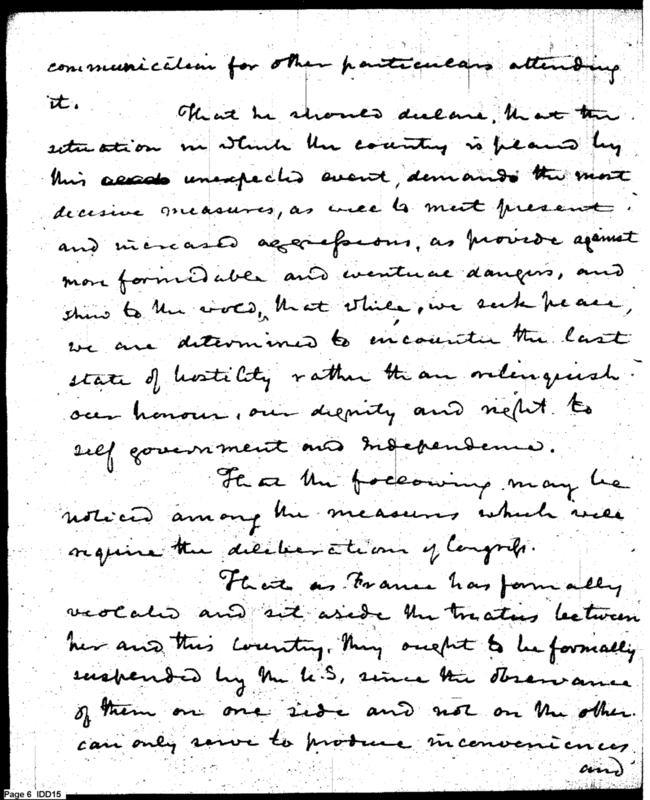 communication for other particulars attending
it.
That he should declare, that the
situation in which the country is placed by
this unexpected event, demands the most
decisive measures, as well to meet present
and increased aggressions, as provide against
more formidable and eventual dangers, and
shew to the world, that while, we seek peace,
we are determined to encounter the last
state of hostility rather than relinquish
our honour, our dignity and right to
self government and Independence.
That the following may be
noticed among the measures which will
require the deliberation of Congress.
That as France has formally
violated and set aside the treaties between
her and this Country, they ought to be formally
suspended by the U.S, since the observance
of them on one side and not on the other
can only serve to produce inconveniences
and
Page 6 IDD15